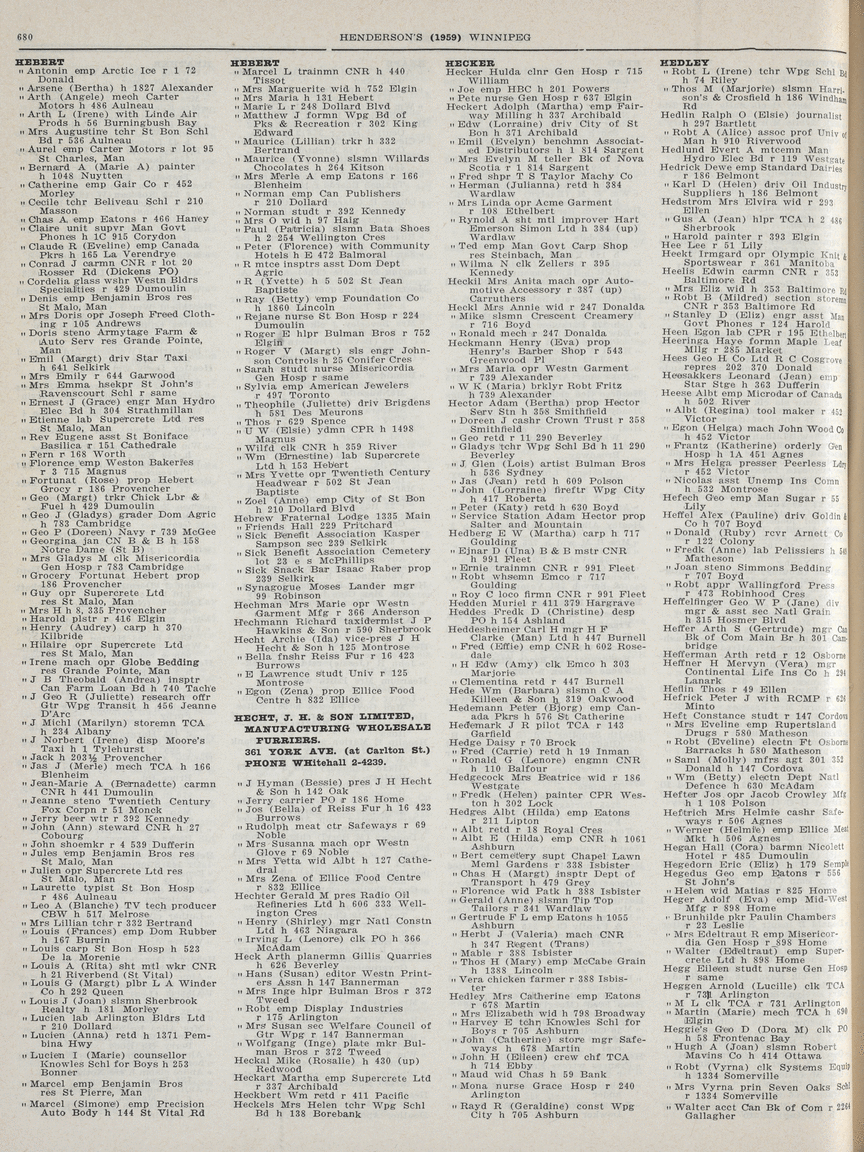 680
HENDERSON'S (1959) WINNIPEG
HEBERT
" Antonin emp Arctic Ice r 1 72
Donald
" Arsene (Bertha) h 1827 Alexander
" Arth (Angele) mech Carter
Motors h 486 Aulneau
" Arth L (Irene) with Linde Air
Prods h 56 Burningbush Bay
" Mrs Augustine tchr St Bon Schl
Bd r 536 Aulneau
" Aurel emp Carter Motors r lot 95
St Charles, Man
" Bernard A (Marie A) painter
h 1048 Nuytten
" Catherine emp Gair Co r 452
Morley
" Cecile tchr Beliveau Schl r 210
Masson
" Chas A emp Eatons r 466 Haney
" Claire unit supvr Man Govt
Phones h 1C 915 Corydon
" Claude R (Eveline) emp Canada
Pkrs h 165 La Verendrye
" Conrad J carmn CNR r lot 20
Rosser Rd (Dickens PO)
" Cordelia glass wshr Westn Bldrs
Specialties r 429 Dumoulin
" Denis emp Benjamin Bros res
St Malo, Man
" Mrs Doris opr Joseph Freed Cloth-
ing r 105 Andrews
" Doris steno Armytage Farm &
Auto Serv res Grande Pointe,
Man
" Emil (Margt) driv Star Taxi
h 641 Selkirk
" Mrs Emily r 644 Garwood
" Mrs Emma hsekpr St John's
Ravenscourt Schl r same
" Ernest J (Grace) engr Man Hydro
Elec Bd h 304 Strathmillan
" Etienne lab Supercrete Ltd res
St Malo, Man
" Rev Eugene asst St Boniface
Basilica r 151 Cathedrale
" Fern r 168 Worth
" Florence emp Weston Bakeries
r 3 715 Magnus
" Fortunat (Rose) prop Hebert
Grocy r 186 Provencher
" Geo (Margt) trkr Check Lbr &
Fuel h 429 Dumoulin
" Geo J (Gladys) grader Dom Agric
h 783 Cambridge
" Geo P (Doreen) Navy r 739 McGee
" Georgina jan CN B & B h 158
Notre Dame (St B)
" Mrs Gladys M clk Misericordia
Gen Hosp r 783 Cambridge
" Grocery Fortunat Hebert prop
186 Provencher
" Guy opr Supercrete Ltd
res St Malo, Man
" Mrs H h 8, 335 Provencher
" Harold plstr r 416 Elgin
" Henry (Audrey) carp h 370
Kilbride
" Hilaire opr Supercrete Ltd
res St Malo, Man
" Irene mach opr Globe Bedding
res Grande Pointe, Man
" J B Theobald (Andrea) insptr
Can Farm Loan Bd h 740 Tache
" J Geo R (Juliette) research offr
Gtr Wpg Transit h 456 Jeanne
D'Arc
" J Michl (Marilyn) storemn TCA
h 234 Albany
" J Norbert (Irene) disp Moore's
Taxi h 1 Tylehurst
" Jack h 203½ Provencher
" Jas J (Merle) mech TCA h 166
Blenheim
" Jean-Marie A (Bernadette) carmn
CNR h 441 Dumoulin
" Jeanne steno Twentieth Century
Fox Corpn r 51 Monck
" Jerry beer wtr r 392 Kennedy
" John (Ann) steward CNR h 27
Cobourg
" John shoemkr r 4 539 Dufferin
" Jules emp Benjamin Bros res
St Malo, Man
" Julien opr Supercrete Ltd res
St Malo, Man
" Laurette typist St Bon Hosp
r 486 Aulneau
" Leo A (Blanche) TV tech producer
CBW h 517 Melrose
" Mrs Lillian tchr r 332 Bertrand
" Louis (Frances) emp Dom Rubber
h 167 Burrin
" Louis carp St Bon Hosp h 523
De la Morenie
" Louis A (Rita) sht mtl wkr CNR
h 21 Riverbend (St Vital)
" Louis G (Margt) plbr L A Winder
Co h 292 Queen
" Louis J (Joan) slsmn Sherbrook
Realty h 181 Morley
" Lucien lab Arlington Bldrs Ltd
r 210 Dollard
" Lucien (Anna) retd h 1371 Pem-
bina Hwy
" Lucien I (Marie) counsellor
Knowles Schl for Boys h 253
Bonner
" Marcel emp Benjamin Bros
res St Pierre, Man
" Marcel (Simone) emp Precision
Auto Body h 144 St Vital Rd
HEBERT
" Marcel L trainmn CNR h 440
Tissot
" Mrs Marguerite wid h 752 Elgin
" Mrs Maria h 131 Hebert
" Marie L r 248 Dollard Blvd
" Matthew J formn Wpg Bd of
Pks & Recreation r 302 King
Edward
" Maurice (Lillian) trkr h 332
Bertrand
" Maurice (Yvonne) slsmn Willards
Chocolates h 264 Kitson
" Mrs Merle A emp Eatons r 166
Blenheim
" Norman emp Can Publishers
r 210 Dollard
" Norman studt r 392 Kennedy
" Mrs O wid h 97 Haig
" Paul (Patricia) slsmn Bata Shoes
h 2 254 Wellington Cres
" Peter (Florence) with Community
Hotels h E 472 Balmoral
" R mtce insptrs asst Dom Dept
Agric
" R (Yvette) h 5 502 St Jean
Baptiste
" Ray (Betty) emp Foundation Co
h 1860 Lincoln
" Rejane nurse St Bon Hosp r 224
Dumoulin
" Roger E hlpr Bulman Bros r 752
Elgin
" Roger V (Margt) sls engr John-
son Controls h 25 Conifer Cres
" Sarah studt nurse Misericordia
Gen Hosp r same
" Sylvia emp American Jewelers
r 497 Toronto
" Theophile (Juliette) driv Brigdens
h 581 Des Meurons
" Thos r 629 Spence
" U W (Elsie) ydmn CPR h 1498
Magnus
" Wilfd clk CNR h 359 River
" Wm (Ernestine) lab Supercrete
Ltd h 153 Hebert
" Mrs Yvette opr Twentieth Century
Headwear r 502 St Jean
Baptiste
" Zoel (Anne) emp City of St Bon
h 210 Dollard Blvd
Hebrew Fraternal Lodge 1335 Main
" Friends Hall 229 Pritchard
" Sick Benefit Association Kasper
Sampson sec 239 Selkirk
" Sick Benefit Association Cemetery
lot 23 e s McPhillips
" Sick Snack Bar Isaac Rabar prop
239 Selkirk
" Synagogue Moses Lander mgr
99 Robinson
Hechman Mrs Marie opr Westn
Garment Mfg r 366 Anderson
Hechmann Richard taxidermist J P
Hawkins & Son r 590 Sherbrook
Hecht Archie (Ida) vice-pres J H
Hecht & Son h 125 Montrose
" Bella fnshr Reiss Fur r 16 423
Burrows
" E Lawrence studt Univ r 125
Montrose
" Egon (Zena) prop Ellice Food
Centre h 832 Ellice
HECHT, J. H. & SON LIMITED,
MANUFACTURING WHOLESALE
FURRIERS.
361 YORK AVE. (at Carlton St.)
PHONE WHitehall 2-4239.
" J Hyman (Bessie) pres J H Hecht
& Son h 142 Oak
" Jerry carrier PO r 186 Home
" Jos (Bella) of Reiss Fur h 16 423
Burrows
" Rudolph meat ctr Safeways r 69
Noble
" Mrs Susanna mach opr Westn
Glove r 69 Noble
" Mrs Yetta wid Albt h 127 Cathe-
dral
" Mrs Zena of Ellice Food Centre
r 832 Ellice
Hechter Gerald M pres Radio Oil
Refineries Ltd h 606 333 Well-
ington Cres
" Henry (Shirley) mgr Natl Constn
Ltd h 463 Niagara
" Irving L (Lenore) clk PO h 366
McAdam
Heck Arth planermn Gillis Quarries
h 626 Beverley
" Hans (Susan) editor Westn Print-
ers Assn h 147 Bannerman
" Mrs Inge hlpr Bulman Bros r 372
Tweed
" Robt emp Display Industries
r 175 Arlington
" Mrs Susan sec Welfare Council of
Gtr Wpg r 147 Bannerman
" Wolfgang (Inge) plate mkr Bul-
man Bros r 372 Tweed
Heckal Mike (Rosalie) h 430 (up)
Redwood
Heckart Martha emp Supercrete Ltd
r 337 Archibald
Heckbert Wm retd r 411 Pacific
Heckels Mrs Helen tchr Wpg Schl
Bd h 138 Borebank
HECKER
Hecker Hulda clnr Gen Hosp r 715
William
" Joe emp HBC h 201 Powers
" Pete nurse Gen Hosp r 637 Elgin
Heckert Adolph (Martha) emp Fair-
way Milling h 337 Archibald
" Edw (Lorraine) driv City of St
Bon h 371 Archibald
" Emil (Evelyn) benchmn Associat-
ed Distributors h 1 814 Sargent
" Mrs Evelyn M teller Bk of Nova
Scotia r 1 814 Sargent
" Fred shpr T S Taylor Machy Co
" Herman (Julianna) retd h 384
Wardlaw
" Mrs Linda opr Acme Garment
r 108 Ethelbert
" Rynold A sht mtl improver Hart
Emerson Simon Ltd h 384 (up)
Wardlaw
" Ted emp Man Govt Carp Shop
res Steinbach, Man
" Wilma N clk Zellers r 395
Kennedy
Heckil Mrs Anita mach opr Auto-
motive Accessory r 387 (up)
Carruthers
Heckl Mrs Annie wid r 247 Donalda
" Mike slsmn Crescent Creamery
r 716 Boyd
" Ronald mech r 247 Donalda
Heckmann Henry (Eva) prop
Henry's Barber Shop r 543
Greenwood Pl
" Mrs Maria opr Westn Garment
r 739 Alexander
" W K (Maria) brklyr Robt Fritz
h 739 Alexander
Hector Adam (Bertha) prop Hector
Serv Stn h 358 Smithfield
" Doreen J cashr Crown Trust r 358
Smithfield
" Geo retd r 11 290 Beverley
" Gladys tchr Wpg Schl Bd h 11 290
Beverley
" J Glen (Lois) artist Bulman Bros
h 536 Sydney
" Jas (Jean) retd h 609 Polson
" John (Lorraine) fireftr Wpg City
h 417 Roberta
" Peter (Katy) retd h 630 Boyd
" Service Station Adam Hector prop
Salter and Mountain
Hedberg E W (Martha) carp h 717
Goulding
" Ejnar D (Una) B & B mstr CNR
h 991 Fleet
" Ernie trainmn CNR r 991 Fleet
" Robt whsemn Emco r 717
Goulding
" Roy C loco firmn CNR r 991 Fleet
Hedden Muriel r 411 379 Hargrave
Heddes Fredk D (Christine) desp
PO h 154 Ashland
Heddesheimer Carl H mgr H F
Clarke (Man) Ltd h 447 Burnell
" Fred (Effie) emp CNR h 602 Rose-
dale
" H Edw (Amy) clk Emco h 303
Marjorie
" Clementina retd r 447 Burnell
Hede Wm (Barbara) slsmn C A
Killeen & Son h 319 Oakwood
Hedemann Peter (Bjorg) emp Can-
ada Pkrs h 576 St Catherine
Hedemark J R pilot TCA r 143
Garfield
Hedge Daisy r 70 Brock
" Fred (Carrie) retd h 19 Inman
" Ronald G (Lenore) engmn CNR
h 110 Balfour
Hedgecock Mrs Beatrice wid r 186
Westgate
" Fredk (Helen) painter CPR Wes-
ton h 302 Lock
Hedges Albt (Hilda) emp Eatons
r 211 Lipton
" Albt retd r 18 Royal Cres
" Albt E (Hilda) emp CNR h 1061
Ashburn
" Bert cemetery supt Chapel Lawn
Meml Gardens r 338 Isbister
" Chas H (Margt) insptr Dept of
Transport h 479 Grey
" Florence wid Patk h 388 Isbister
" Gerald (Anne) slsmn Tip Top
Tailors r 341 Wardlaw
" Gertrude F L emp Eatons h 1055
Ashburn
" Herbt J (Valeria) mach CNR
h 347 Regent (Trans)
" Mable r 388 Isbister
" Thos H (Mary) emp McCabe Grain
h 1388 Lincoln
" Vera chicken farmer r 388 Isbis-
ter
Hedley Mrs Catherine emp Eatons
r 678 Martin
" Mrs Elizabeth wid h 798 Broadway
" Harvey E tchr Knowles Schl for
Boys r 705 Ashburn
" John (Catherine) store mgr Safe-
ways h 678 Martin
" John H (Eileen) crew chf TCA
h 714 Ebby
" Maud wid Chas h 59 Bank
" Mona nurse Grace Hosp r 240
Arlington
" Rayd R (Geraldine) const Wpg
City h 705 Ashburn
HEDLEY
" Robt L (Irene) tchr Wpg Schl Bd
h 74 Riley
" Thos M (Marjorie) slsmn Harri-
son's & Crosfield h 186 Windham
Rd
Hedlin Ralph O (Elsie) journalist
h 297 Bartlett
" Robt A (Alice) assoc prof Univ of
Man h 910 Riverwood
Hedlund Evert A mtcemn Man
Hydro Elec Bd r 119 Westgate
Hedrick Dewe emp Standard Dairies
r 186 Belmont
" Karl D (Helen) driv Oil Industry
Suppliers h 186 Belmont
Hedstrom Mrs Elvira wid r 293
Ellen
" Gus A (Jean) hlpr TCA h 2 486
Sherbrook
" Harold painter r 393 Elgin
Hee Lee r 51 Lily
Heekt Irmgard opr Olympic Knit &
Sportswear r 361 Manitoba
Heelis Edwin carmn CNR r 353
Baltimore Rd
" Mrs Eliz wid h 353 Baltimore Rd
" Robt B (Mildred) section storemn
CNR r 353 Baltimore Rd
" Stanley D (Eliz) engr asst Man
Govt Phones r 124 Harold
Heen Egon lab CPR r 195 Ethelbert
Heeringa Haye formn Maple Leaf
Mllg r 285 Market
Hees Geo H Co Ltd R C Cosgrove
repres 202 370 Donald
Heesakkers Leonard (Jean) emp
Star Stge h 363 Dufferin
Heese Albt emp Microdar of Canada
h 502 River
" Albt (Regina) tool maker r 452
Victor
" Egon (Helga) mach John Wood Co
h 452 Victor
" Frantz (Katherine) orderly Gen
Hosp h 1A 451 Agnes
" Mrs Helga presser Peerless Ldry
r 452 Victor
" Nicolas asst Unemp Ins Comn
h 532 Montrose
Hefech Geo emp Man Sugar r 55
Lily
Heffel Alex (Pauline) driv Goldin &
Co h 707 Boyd
" Donald (Ruby) rcvr Arnett Co
r 122 Colony
" Fredk (Anne) lab Pelissiers h
Matheson
" Joan steno Simmons Bedding
r 707 Boyd
" Robt appr Wallingford Press
r 473 Robinhood Cres
Heffelfinger Geo W P (Jane) div
mgr & asst sec Natl Grain
h 315 Hosmer Blvd
Heffer Arth S (Gertrude) mgr Can
Bk of Com Main Br h 301 Cam-
bridge
Hefferman Arth retd r 12 Osborne
Heffner H Mervyn (Vera) mgr
Continental Life Ins Co h 294
Lanark
Heflin Thos r 49 Ellen
Hefrick Peter J with RCMP r 624
Minto
Heft Constance studt r 147 Cordova
" Mrs Eveline emp Rupertsland
Drugs r 580 Matheson
" Robt (Eveline) electn Ft Osborne
Barracks h 580 Matheson
" Saml (Molly) mfrs agt 301 352
Donald h 147 Cordova
" Wm (Betty) electn Dept Natl
Defence h 630 McAdam
Hefter Jos opr Jacob Crowley Mfg
h 1 108 Polson
Heftrich Mrs Helmfe cashr Safe-
ways r 506 Agnes
" Werner (Helmfe) emp Ellice Meat
Mkt h 506 Agnes
Hegan Hall (Cora) barmn Nicolett
Hotel r 485 Dumoulin
Hegedorn Eric (Eliz) h 179 Semple
Hegedus Geo emp Eatons r 556
St John's
" Helen wid Matias r 825 Home
Heger Adolf (Eva) emp Mid-West
Mfg r 898 Home
" Brunhilde pkr Paulin Chambers
r 23 Leslie
" Mrs Edeltraut R emp Misericor-
dia Gen Hosp r 898 Home
" Walter (Edeltraut) emp Super-
crete Ltd h 898 Home
Hegg Eileen studt nurse Gen Hosp
r same
Heggen Arnold (Lucille) clk TCA
r 731 Arlington
" M L clk TCA r 731 Arlington
" Martin (Marie) mech TCA h 690
Elgin
Heggie's Geo D (Dora M) clk PO
h 58 Frontenac Bay
" Hugh A (Joan) slsmn Robert
Mavins Co h 414 Ottawa
" Robt (Vyrna) clk Systems Equip
h 1334 Somerville
" Mrs Vyrna prin Seven Oaks Schl
r 1334 Somerville
" Walter acct Can Bk of Com r 2264
Gallagher